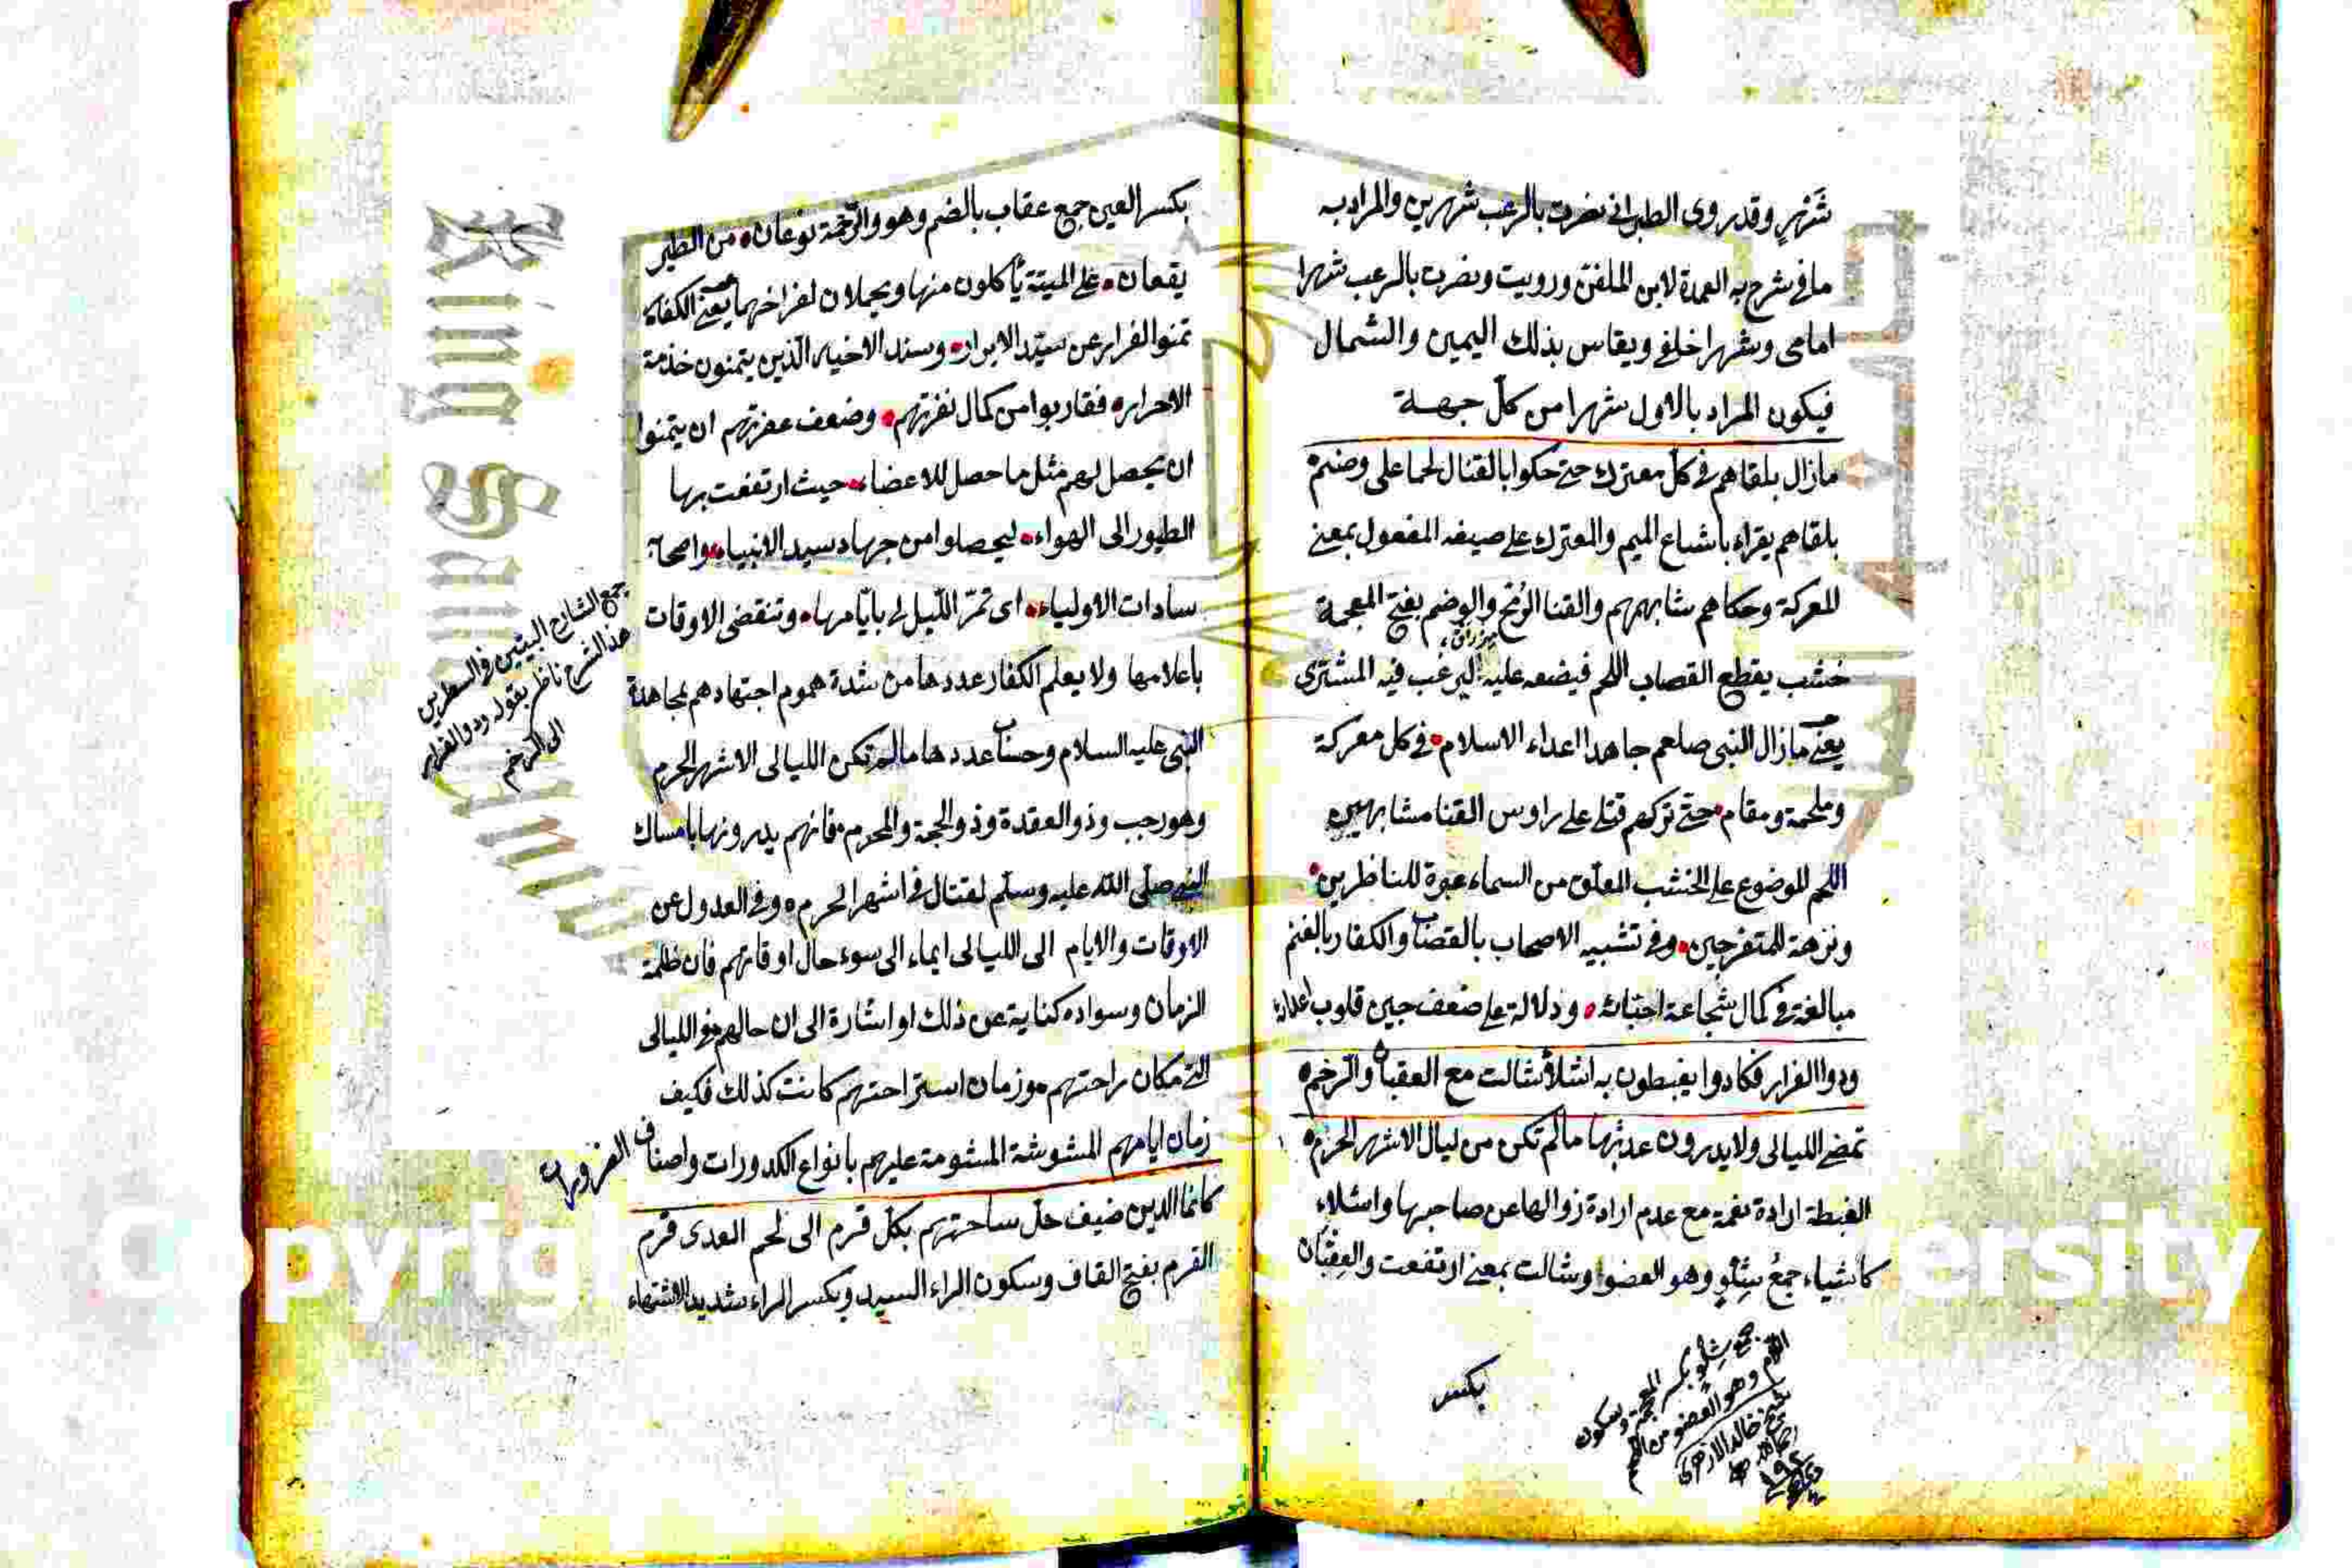 شَهْرٍ وقد روى الطبرانى نضرت بالرعب شهرين والمراد به
ما فى شرح به العمدة لابن الملقن ورويت ونضرت بالرعب شهرا
امامى وشهرا خلفى ويقاس بذلك اليمين والشمال
فيكون المراد بالاول شهرا من كلّ جهة
مازال يلقاهم فى كلّ معترك حتى حكوا بالقنا لحما على وضم
يلقاهم يقراء باشباع الميم والمعترك على صيغه المفعول بمعنى
المعركة وحكاهم شابههم والقنا الرُمح والوضم بفتح المعجمة
مزراق
خشب يقطع القصاب اللحم فيضعه عليه ليرغب فيه المشترى
يعنى مازال النبى صلعم جاهدا اعداء الاسلام فى كل معركة
وملحمة ومقام حتّى تركهم قتلى على راوس القنا مشابهين
اللحم الموضوع على الخشب المعلّق من السماء عبرة للناظرين
ونزهة للمتفرجين وفى تشبيه الاصحاب بالقصاب والكفار بالغنم
مبالغة فى كمال شجاعة احبائه ودلالة على ضعف جبن قلوب اعدائه
ودوا الفرار فكادوا يغبطون به اشلاءً شالت مع العقبان والرخم
تمضى الليالى ولا يدرون عدتها مالم تكن من ليال الاشهر الحرم
الغبطة ارادة نعمة مع عدم ارادة زوالها عن صاحبها واشلاء
كاشياء جمعُ شِلْوٍ وهو العضو وشالت بمعنى ارتفعت والعِقبان
جمع شِلْو بكسر المعجمة وسكون
اللام وهو العضو من اللحم
شيخ خالد الازهرى
بكسر
بكسر العين جمع عقاب بالضم وهو والرّخمة نوعان من الطير
يقعان على الميتة يأكلون منها ويحملان لفراخهما يعنى الكفار
تمنوا الفرار عن سيّد الابرار وسند الاخيار الّذين يتمنون خدمة
الاحرار فقاربوا من كمال نفرتهم وضعف عفرتهم ان يتمنوا
ان يحصل لهم مثل ما حصل للاعضاء حيث ارتفعت بها
الطيور الى الهواء ليحصلوا من جهاد سيد الانبياء واصحابه
سادات الاولياء اى تمرّ اللّيالى بايّامها وتنقضى الاوقات
باعلامها ولا يعلم الكفار عددها من شدة هموم اجتهادهم بمجاهدة
النبى عليه السلام وحساب عددها مالم تكن الليالى الاشهر الحرم
وهو رجب وذو العقدة وذو الحجة والمحرم فانهم يدرونها بامساك
النبى صلّى الله عليه وسلّم لقتال فى اشهر الحرم وفى العدول عن
الاوقات والايام الى الليالى ايماء الى سوء حال اوقاتهم فان ظلمة
الزمان وسواده كناية عن ذلك او اشارة الى ان حالهم فى الليالى
التى مكان راحتهم وزمان استراحتهم كانت كذلك فكيف
زمان ايامهم المشوشة المشومة عليهم بانواع الكدورات واصناف
كانما الدين ضيف حلّ ساحتهم بكلّ قرم الى لحم العدى قرم
القرم بفتح القاف وسكون الراء السيد وبكسر الراء شديد الاشتهاء
جمع الشارح البيتين فى السطرين
هذ الشرح ناظر بقوله ودوا الفرار
الى الرخم